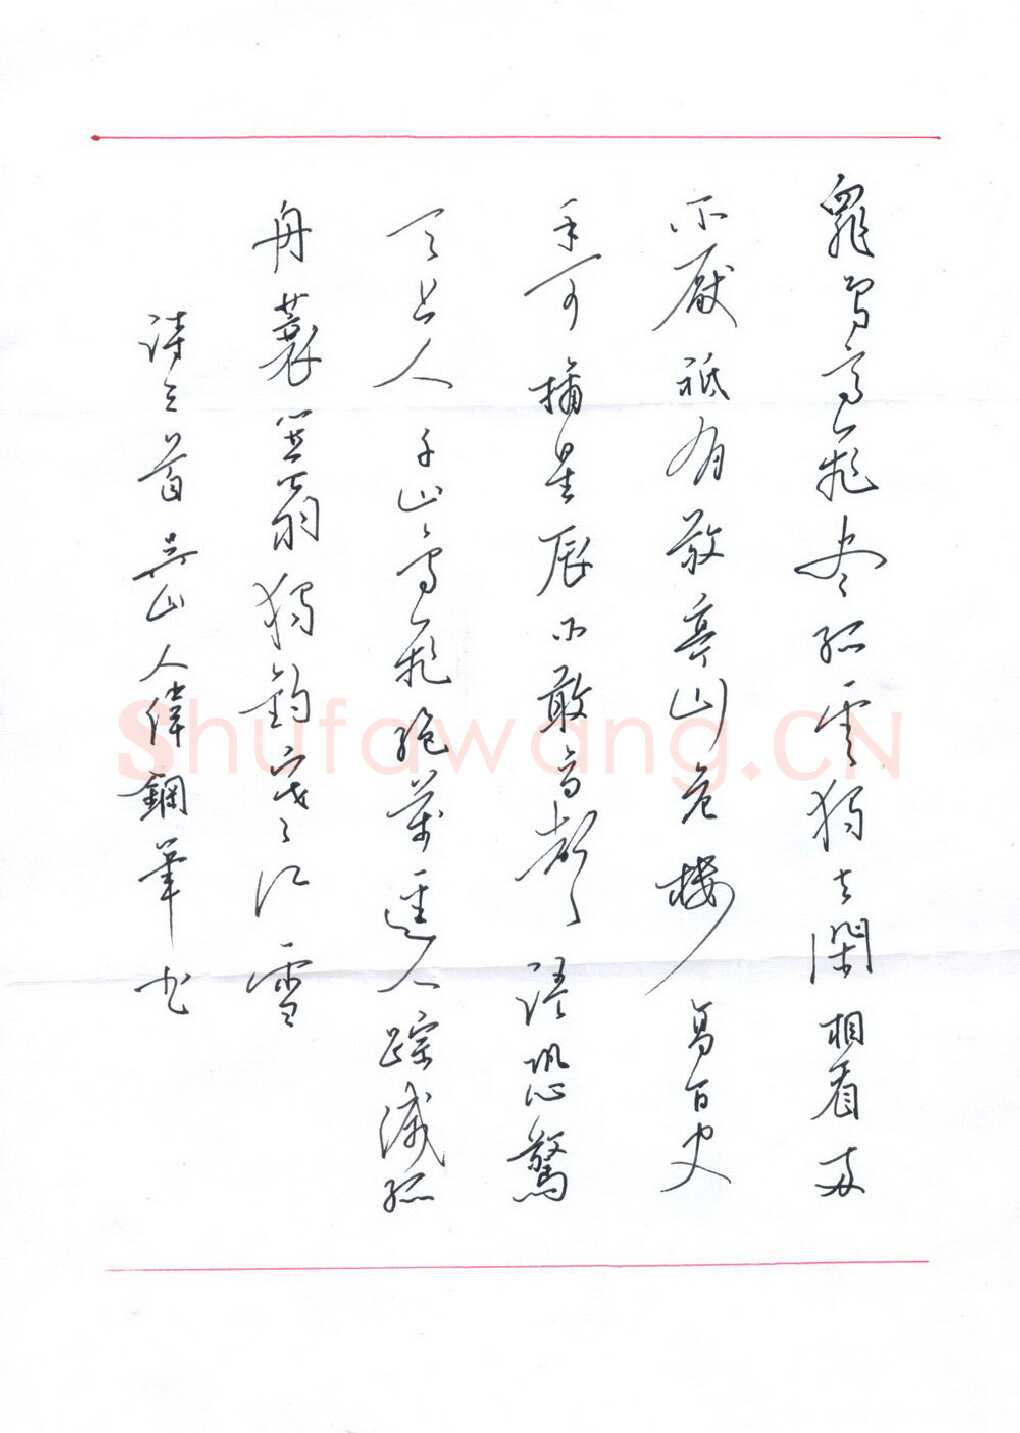 眾鳥高飛盡孤雲獨去閑相看兩
不厭祇有敬亭山危樓高百尺
手可摘星辰不敢高聲語恐驚
天上人千山鳥飛絕萬逕人踪滅孤
舟蓑笠翁獨釣寒江雪
詩三首吴山人偉鋼筆书
Shufawang.CN